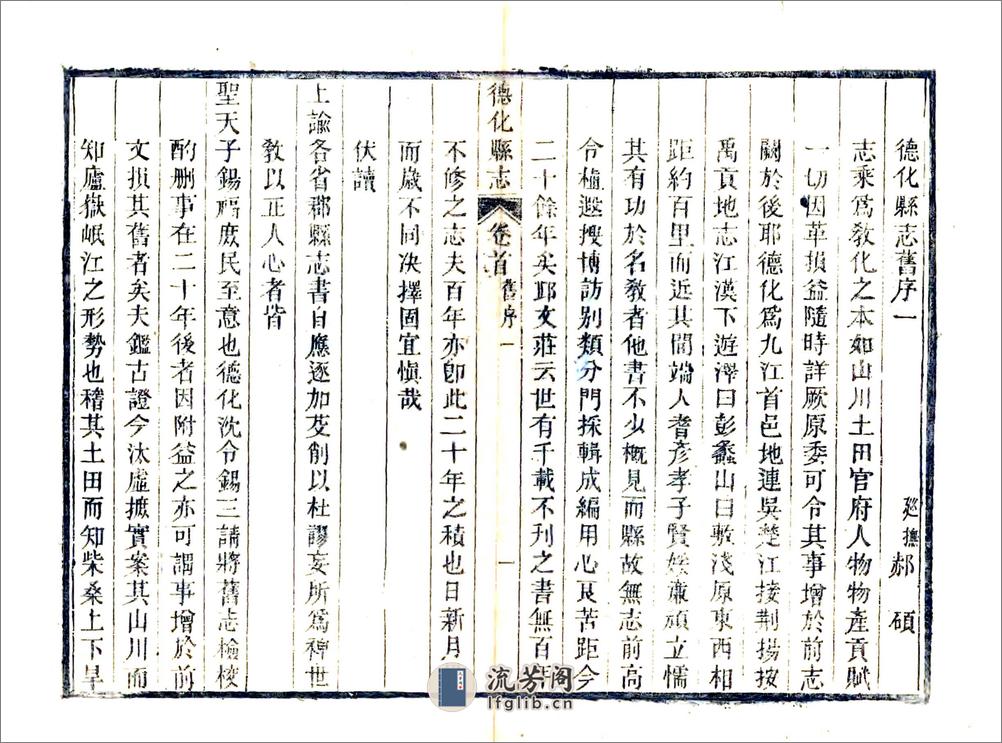 德化縣志舊序一
巡撫郝 碩
志乘爲教化之本如山川土田官府人物物產貢賦
一切因革損益隨時詳厥原委可令其事增於前志
闕於後耶德化爲九江首邑地連吳楚江接荆揚按
禹貢地志江漢下遊澤曰彭蠡山曰敷淺原東西相
距約百里而近其閒端人耆彥孝子賢媛廉頑立懦
其有功於名教者他書不少概見而縣故無志前高
令植遐搜博訪别類分門採輯成編用心良苦距今
二十餘年矣邱文莊云世有千載不刊之書無百年
德化縣志 卷首 舊序一 一
不修之志夫百年亦卽此二十年之積也日新月
而歲不同决擇固宜愼哉
伏讀
上諭各省郡縣志書自應逐加芟削以杜謬妄所爲裨世
教以正人心者皆
聖天子錫福庶民至意也德化沈令錫三請將舊志檢校
酌删事在二十年後者因附益之亦可謂事增於前
文損其舊者矣夫鑑古證今汰虛摭實案其山川而
知廬嶽岷江之形勢也稽其土田而知柴桑上下旱
流芳阁
lfglib.cn